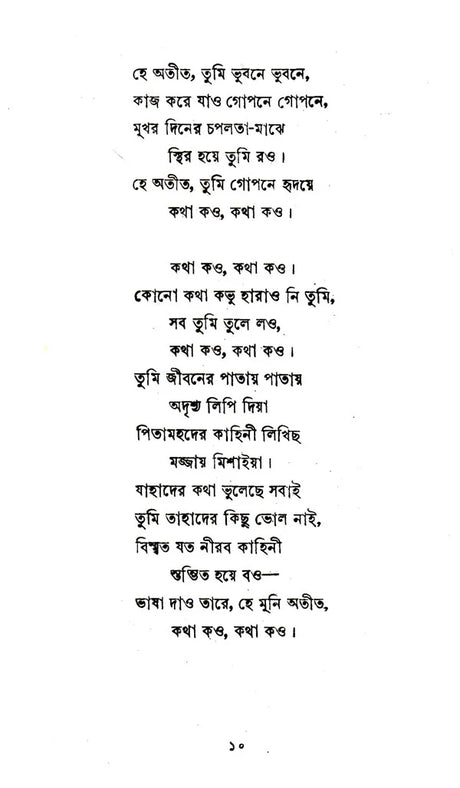 হে অতীত, তুমি ভুবনে ভুবনে,
কাজ করে যাও গোপনে গোপনে,
মুখর দিনের চপলতা-মাঝে
স্থির হয়ে তুমি রও।
হে অতীত, তুমি গোপনে হৃদয়ে
কথা কও, কথা কও।
কথা কও, কথা কও।
কোনো কথা কভু হারাও নি তুমি,
সব তুমি তুলে লও,
কথা কও, কথা কও।
তুমি জীবনের পাতায় পাতায়
অদৃশ্য লিপি দিয়া
পিতামহদের কাহিনী লিখিছ
মজ্জায় মিশাইয়া।
যাহাদের কথা ভুলেছে সবাই
তুমি তাহাদের কিছু ভোল নাই,
বিস্মৃত যত নীরব কাহিনী
স্তম্ভিত হয়ে বও—
ভাষা দাও তারে, হে মুনি অতীত,
কথা কও, কথা কও।
১০